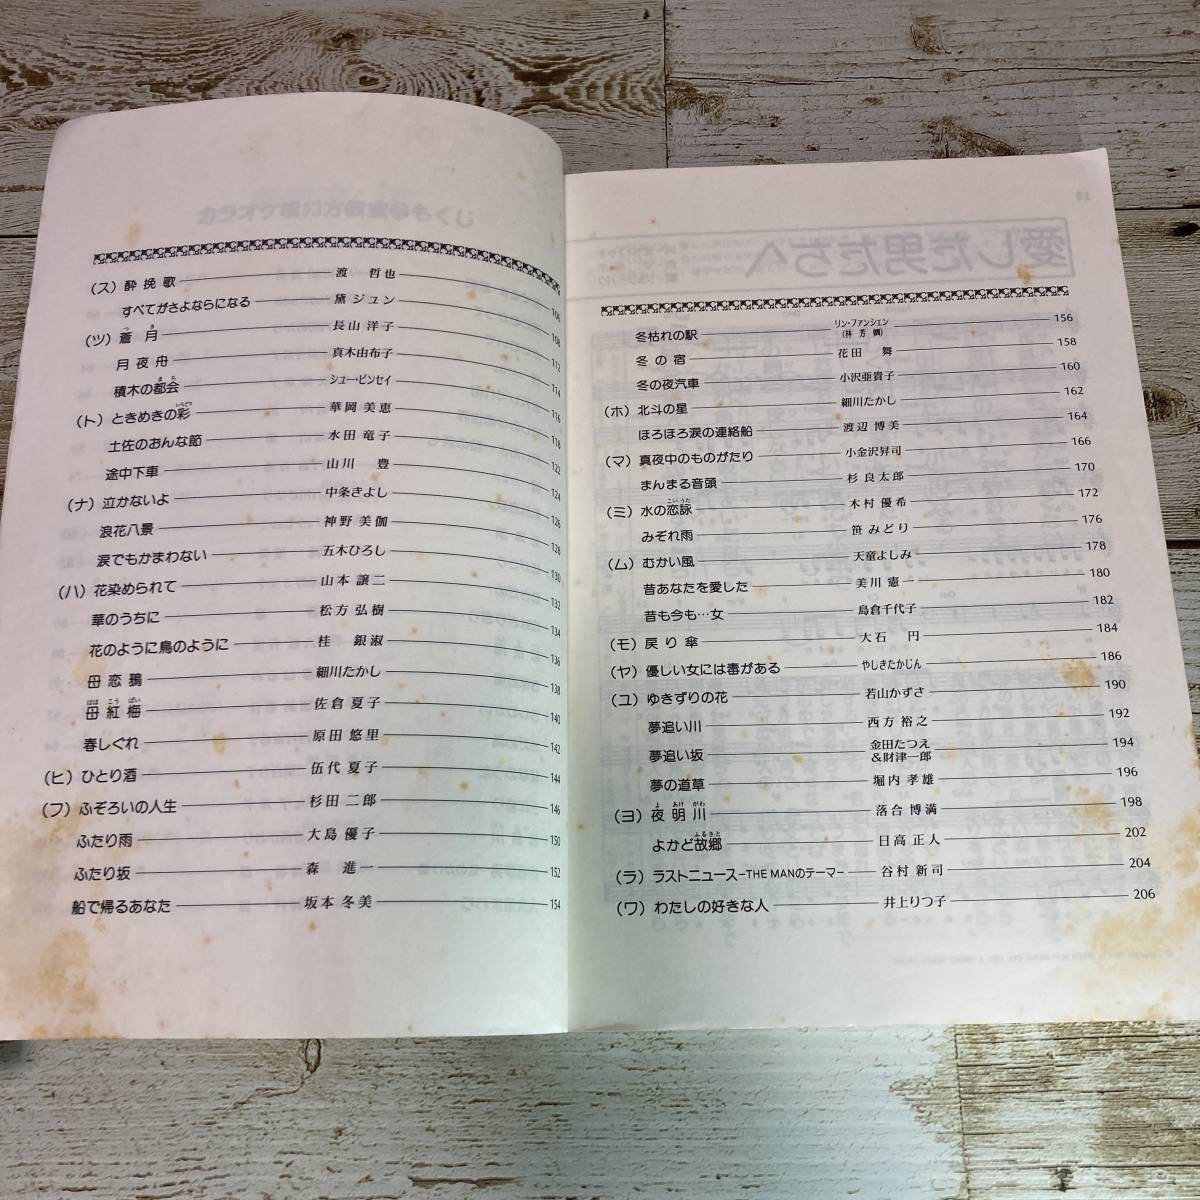 (ス) 酔挽歌 渡 哲也 106
すべてがさよならになる 黛ジュン 108
(ツ) 蒼月 長山洋子 112
月夜舟 真木由布子 114
積木の都会 シュー・ピンセイ 116
(ト) ときめきの彩 華岡美恵 118
土佐のおんな節 水田竜子 122
途中下車 山川 豊 124
(ナ) 泣かないよ 中条きよし 126
浪花八景 神野美伽 128
涙でもかまわない 五木ひろし 130
(ハ) 花染められて 山本譲二 132
華のうちに 松方弘樹 134
花のように鳥のように 桂 銀淑 136
母恋鴉 細川たかし 138
母紅梅 佐倉夏子 140
春しぐれ 原田悠里 142
(ヒ) ひとり酒 伍代夏子 144
(フ) ふぞろいの人生 杉田二郎 146
ふたり雨 大島優子 150
ふたり坂 森 進一 152
船で帰るあなた 坂本冬美 154
冬枯れの駅 リン・ファンシェン (林 芳 嫻) 156
冬の宿 花田 舞 158
冬の夜汽車 小沢亜貴子 160
(ホ) 北斗の星 細川たかし 162
ほろほろ涙の連絡船 渡辺博美 164
(マ) 真夜中のものがたり 小金沢昇司 166
まんまる音頭 杉良太郎 170
(ミ) 水の恋詠 木村優希 172
みぞれ雨 笹みどり 176
(ム) むかい風 天童よしみ 178
昔あなたを愛した 美川憲一 180
昔も今も…女 島倉千代子 182
(モ) 戻り傘 大石 円 184
(ヤ) 優しい女には毒がある やしきたかじん 186
(ユ) ゆきずりの花 若山かずさ 190
夢追い川 西方裕之 192
夢追い坂 金田たつえ &財津一郎 194
夢の道草 堀内孝雄 196
(ヨ) 夜明川 落合博満 198
よかど故郷 日高正人 202
(ラ) ラストニュース−THE MANのテーマ− 谷村新司 204
(ワ) わたしの好きな人 井上りつ子 206